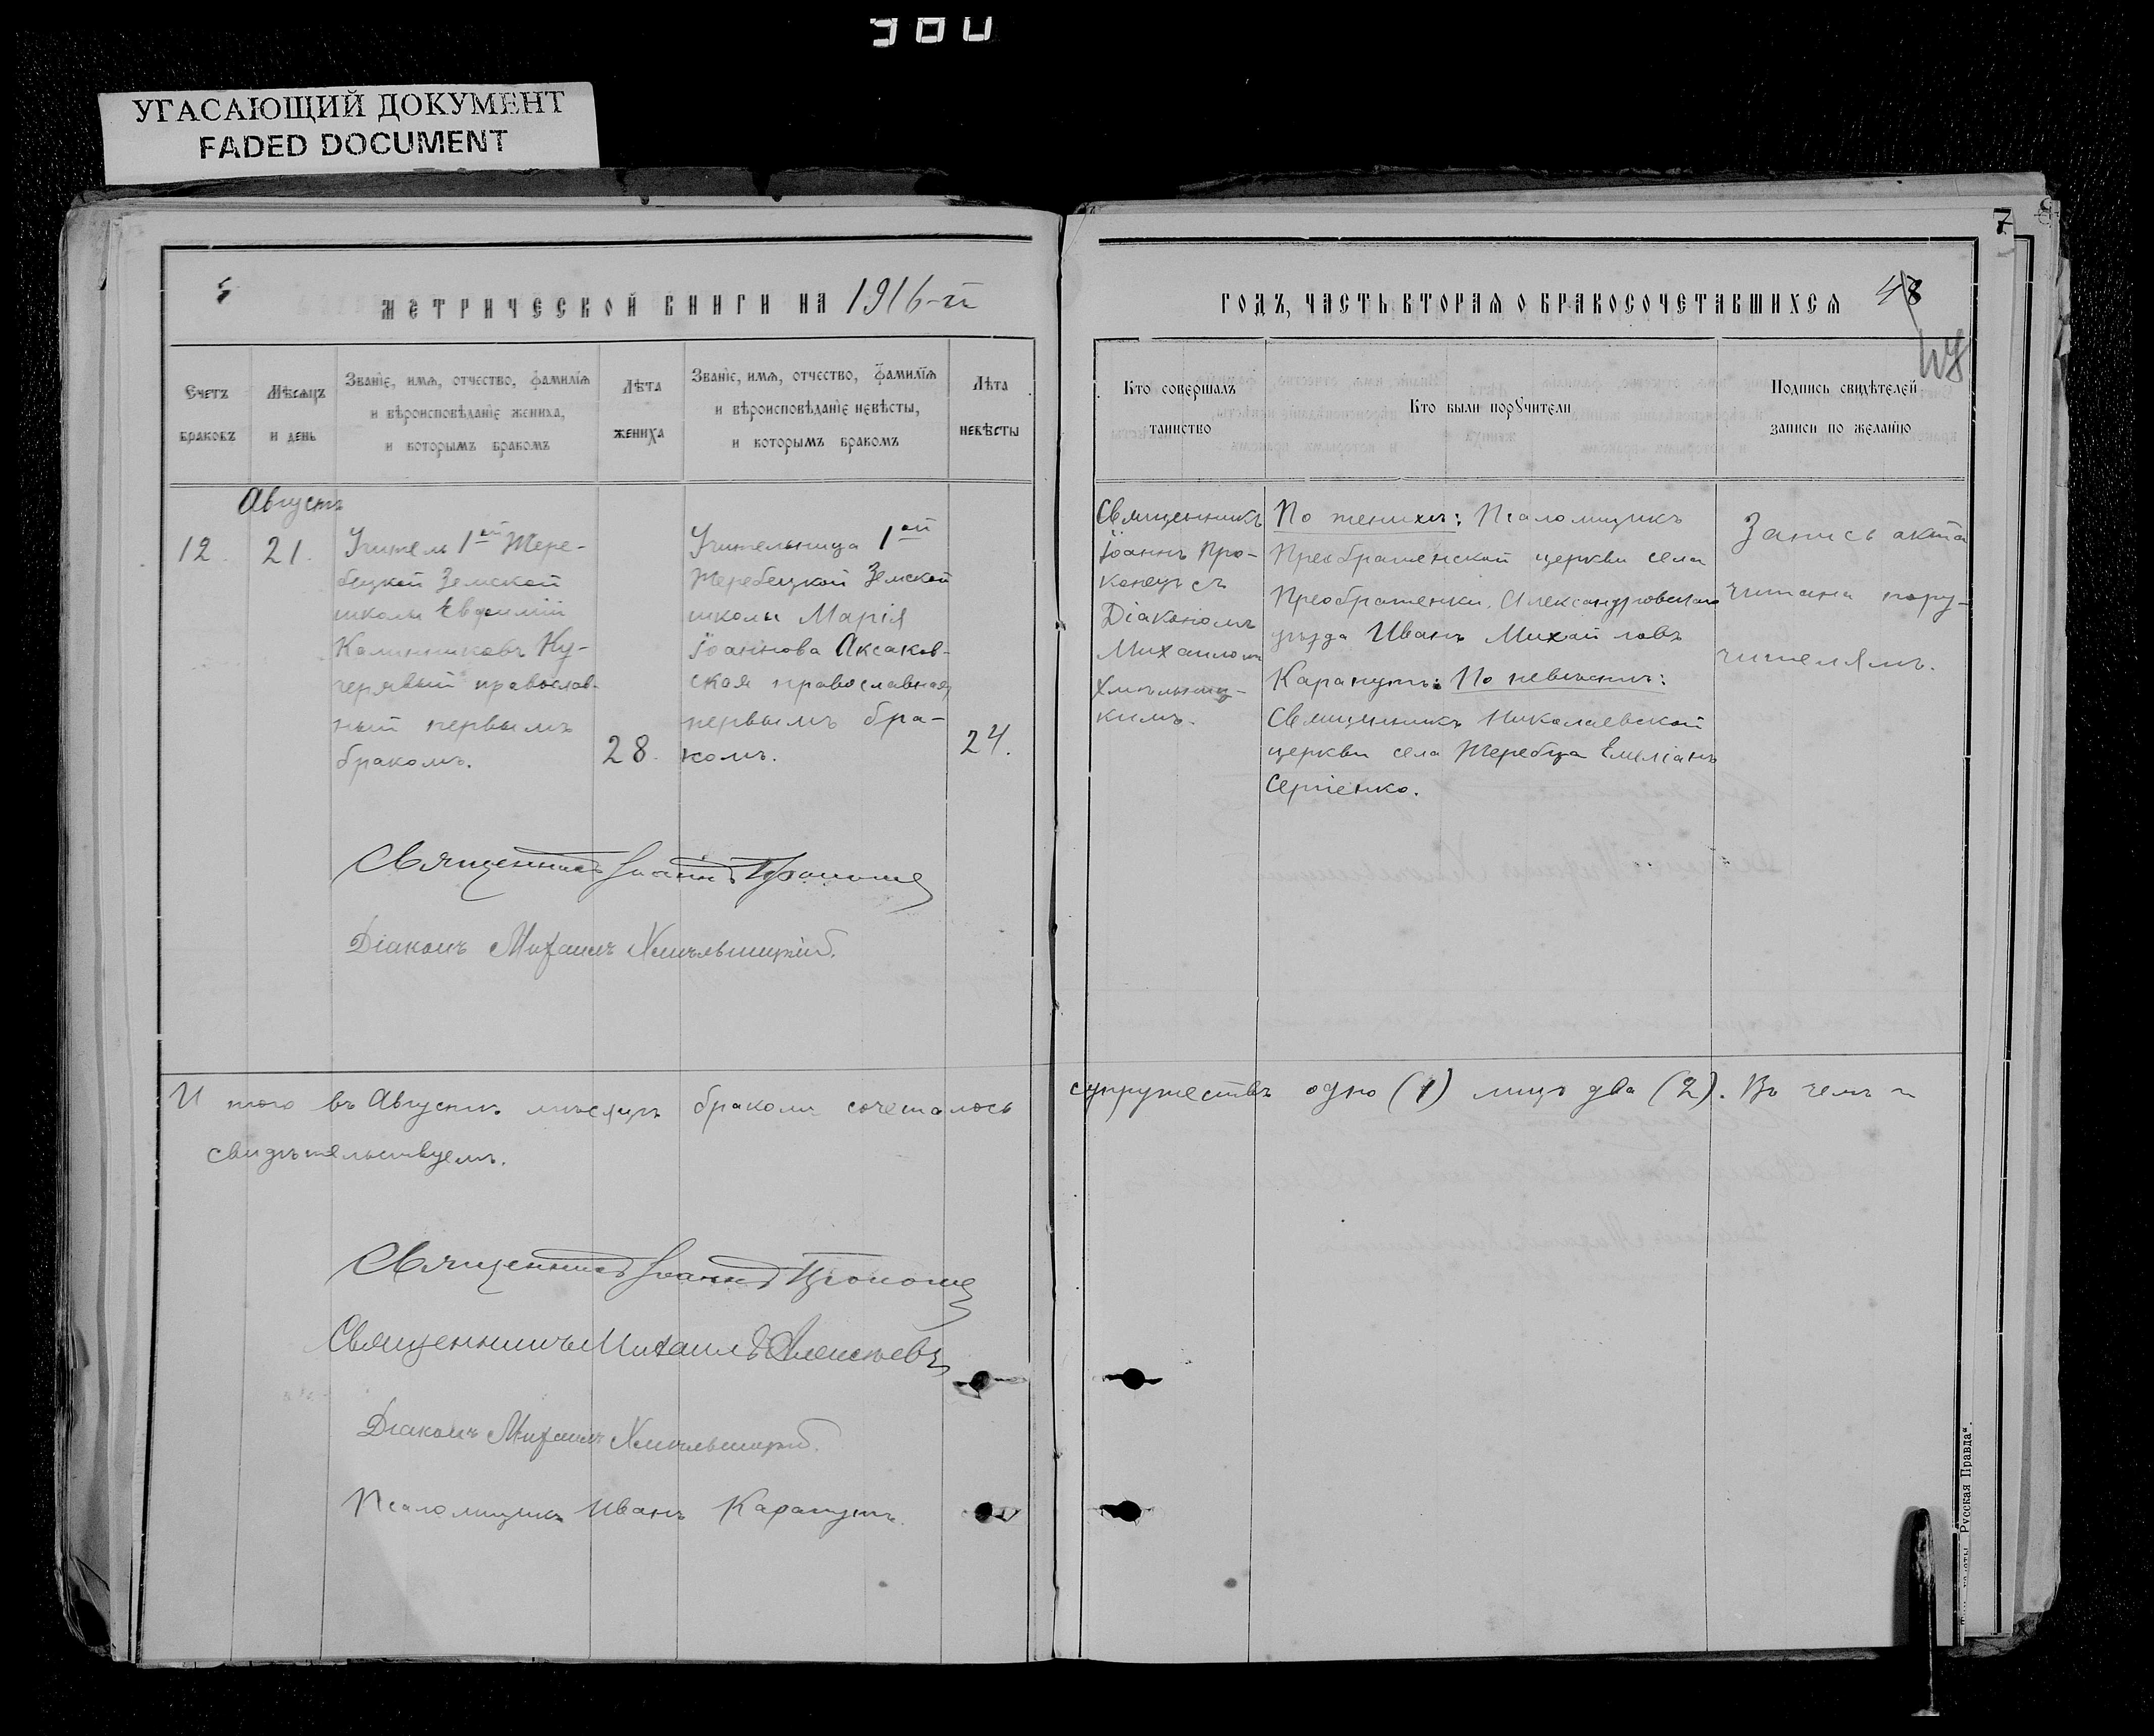 380
УГАСАЮЩИЙ ДОКУМЕНТ
FADED DOCUMENT
7
5
МЕТРИЧЕСКОЙ КНИГИ НА 1916-й
ГОДЪ, ЧАСТЬ ВТОРАЯ О БРАКОСОЧЕТАВШИХСЯ
48
Счетъ
браковъ
Мѣсяцъ
и день
Званіе, имя, отчество, фамилія
и вѣроисповѣданіе жениха,
и которымъ бракомъ
Лѣта
жениха
Званіе, имя, отчество, фамилія
и вѣроисповѣданіе невѣсты,
и которымъ бракомъ
Лѣта
невѣсты
Кто совершалъ
таинство
Кто были поручители
Подпись свидѣтелей
записи по желанію
Августъ
12.
21.
Учитель 1ой Тере-
бецкой Земской
школы Евфимій
Калинниковъ Ку-
черявый православ-
ный первымъ
бракомъ.
28.
Учительница 1ой
Теребецкой Земской
школы Марія
Іоаннова Аксаков-
ская православная
первымъ бра-
комъ.
24.
Священникъ
Іоаннъ Про-
съ
Діакономъ
Михаиломъ
Хмѣльниц-
кимъ.
По женихѣ: Псаломщикъ
Преображенской церкви села
Преображенки, Александровскаго
уѣзда Иванъ Михайловъ
Карапутъ: По невѣстѣ:
Священникъ Николаевской
церкви села Теребца Емеліанъ
Сергіенко.
Запись акта
читана пору-
чителямъ.
Священникъ Іоаннъ
Діаконъ Михаилъ Хмѣльницкій.
И того въ Августѣ мѣсяцѣ бракомъ сочеталось супружествъ одно (1) лицъ два (2). Въ чемъ и
свидѣтельствуемъ.
Священникъ Іоаннъ
Священникъ Михаилъ Алексѣевъ
Діаконъ Михаилъ Хмѣльницкій.
Псаломщикъ Иванъ Карапутъ.
Русская Правда“.